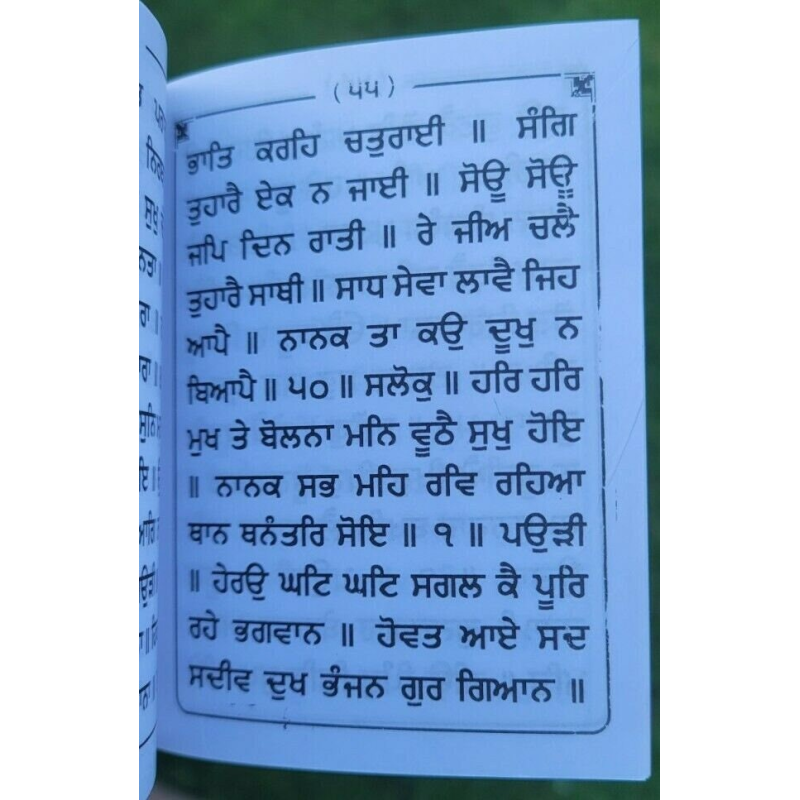 (੫੫)
ਭਾਤਿ ਕਰਹਿ ਚਤੁਰਾਈ ॥ ਸੰਗਿ
ਤੁਹਾਰੈ ਏਕ ਨ ਜਾਈ ॥ ਸੋਊ ਸੋਊ
ਜਪਿ ਦਿਨ ਰਾਤੀ ॥ ਰੇ ਜੀਅ ਚਲੈ
ਤੁਹਾਰੈ ਸਾਥੀ ॥ ਸਾਧ ਸੇਵਾ ਲਾਵੈ ਜਿਹ
ਆਪੈ ॥ ਨਾਨਕ ਤਾ ਕਉ ਦੂਖੁ ਨ
ਬਿਆਪੈ ॥ ੫੦ ॥ ਸਲੋਕੁ ॥ ਹਰਿ ਹਰਿ
ਮੁਖ ਤੇ ਬੋਲਨਾ ਮਨਿ ਵੂਠੈ ਸੁਖੁ ਹੋਇ
॥ ਨਾਨਕ ਸਭ ਮਹਿ ਰਵਿ ਰਹਿਆ
ਥਾਨ ਥਨੰਤਰਿ ਸੋਇ ॥ ੧ ॥ ਪਉੜੀ
॥ ਹੇਰਉ ਘਟਿ ਘਟਿ ਸਗਲ ਕੈ ਪੂਰਿ
ਰਹੇ ਭਗਵਾਨ ॥ ਹੋਵਤ ਆਏ ਸਦ
ਸਦੀਵ ਦੁਖ ਭੰਜਨ ਗੁਰ ਗਿਆਨ ॥